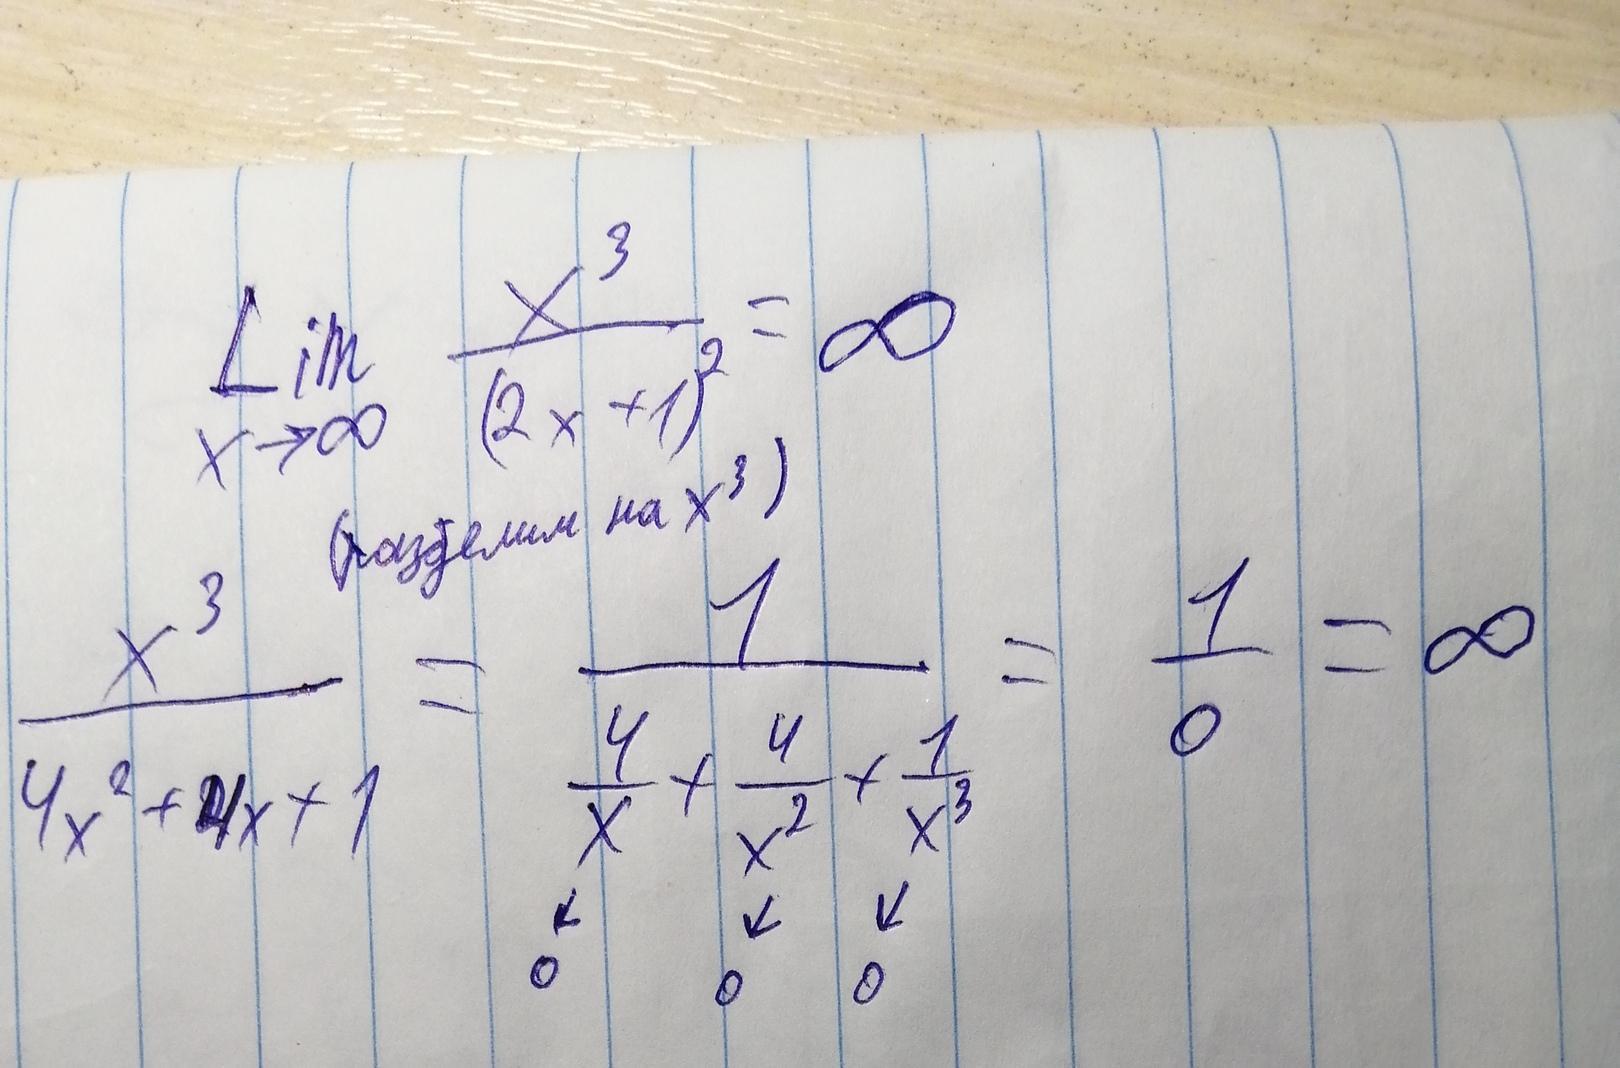 Lim x→∞ x³/(2x+1)² = ∞
(разделим на x³)
x³/(4x²+4x+1) = 1/(4/x + 4/x² + 1/x³) = 1/0 = ∞
↙ ↙ ↙
0 0 0